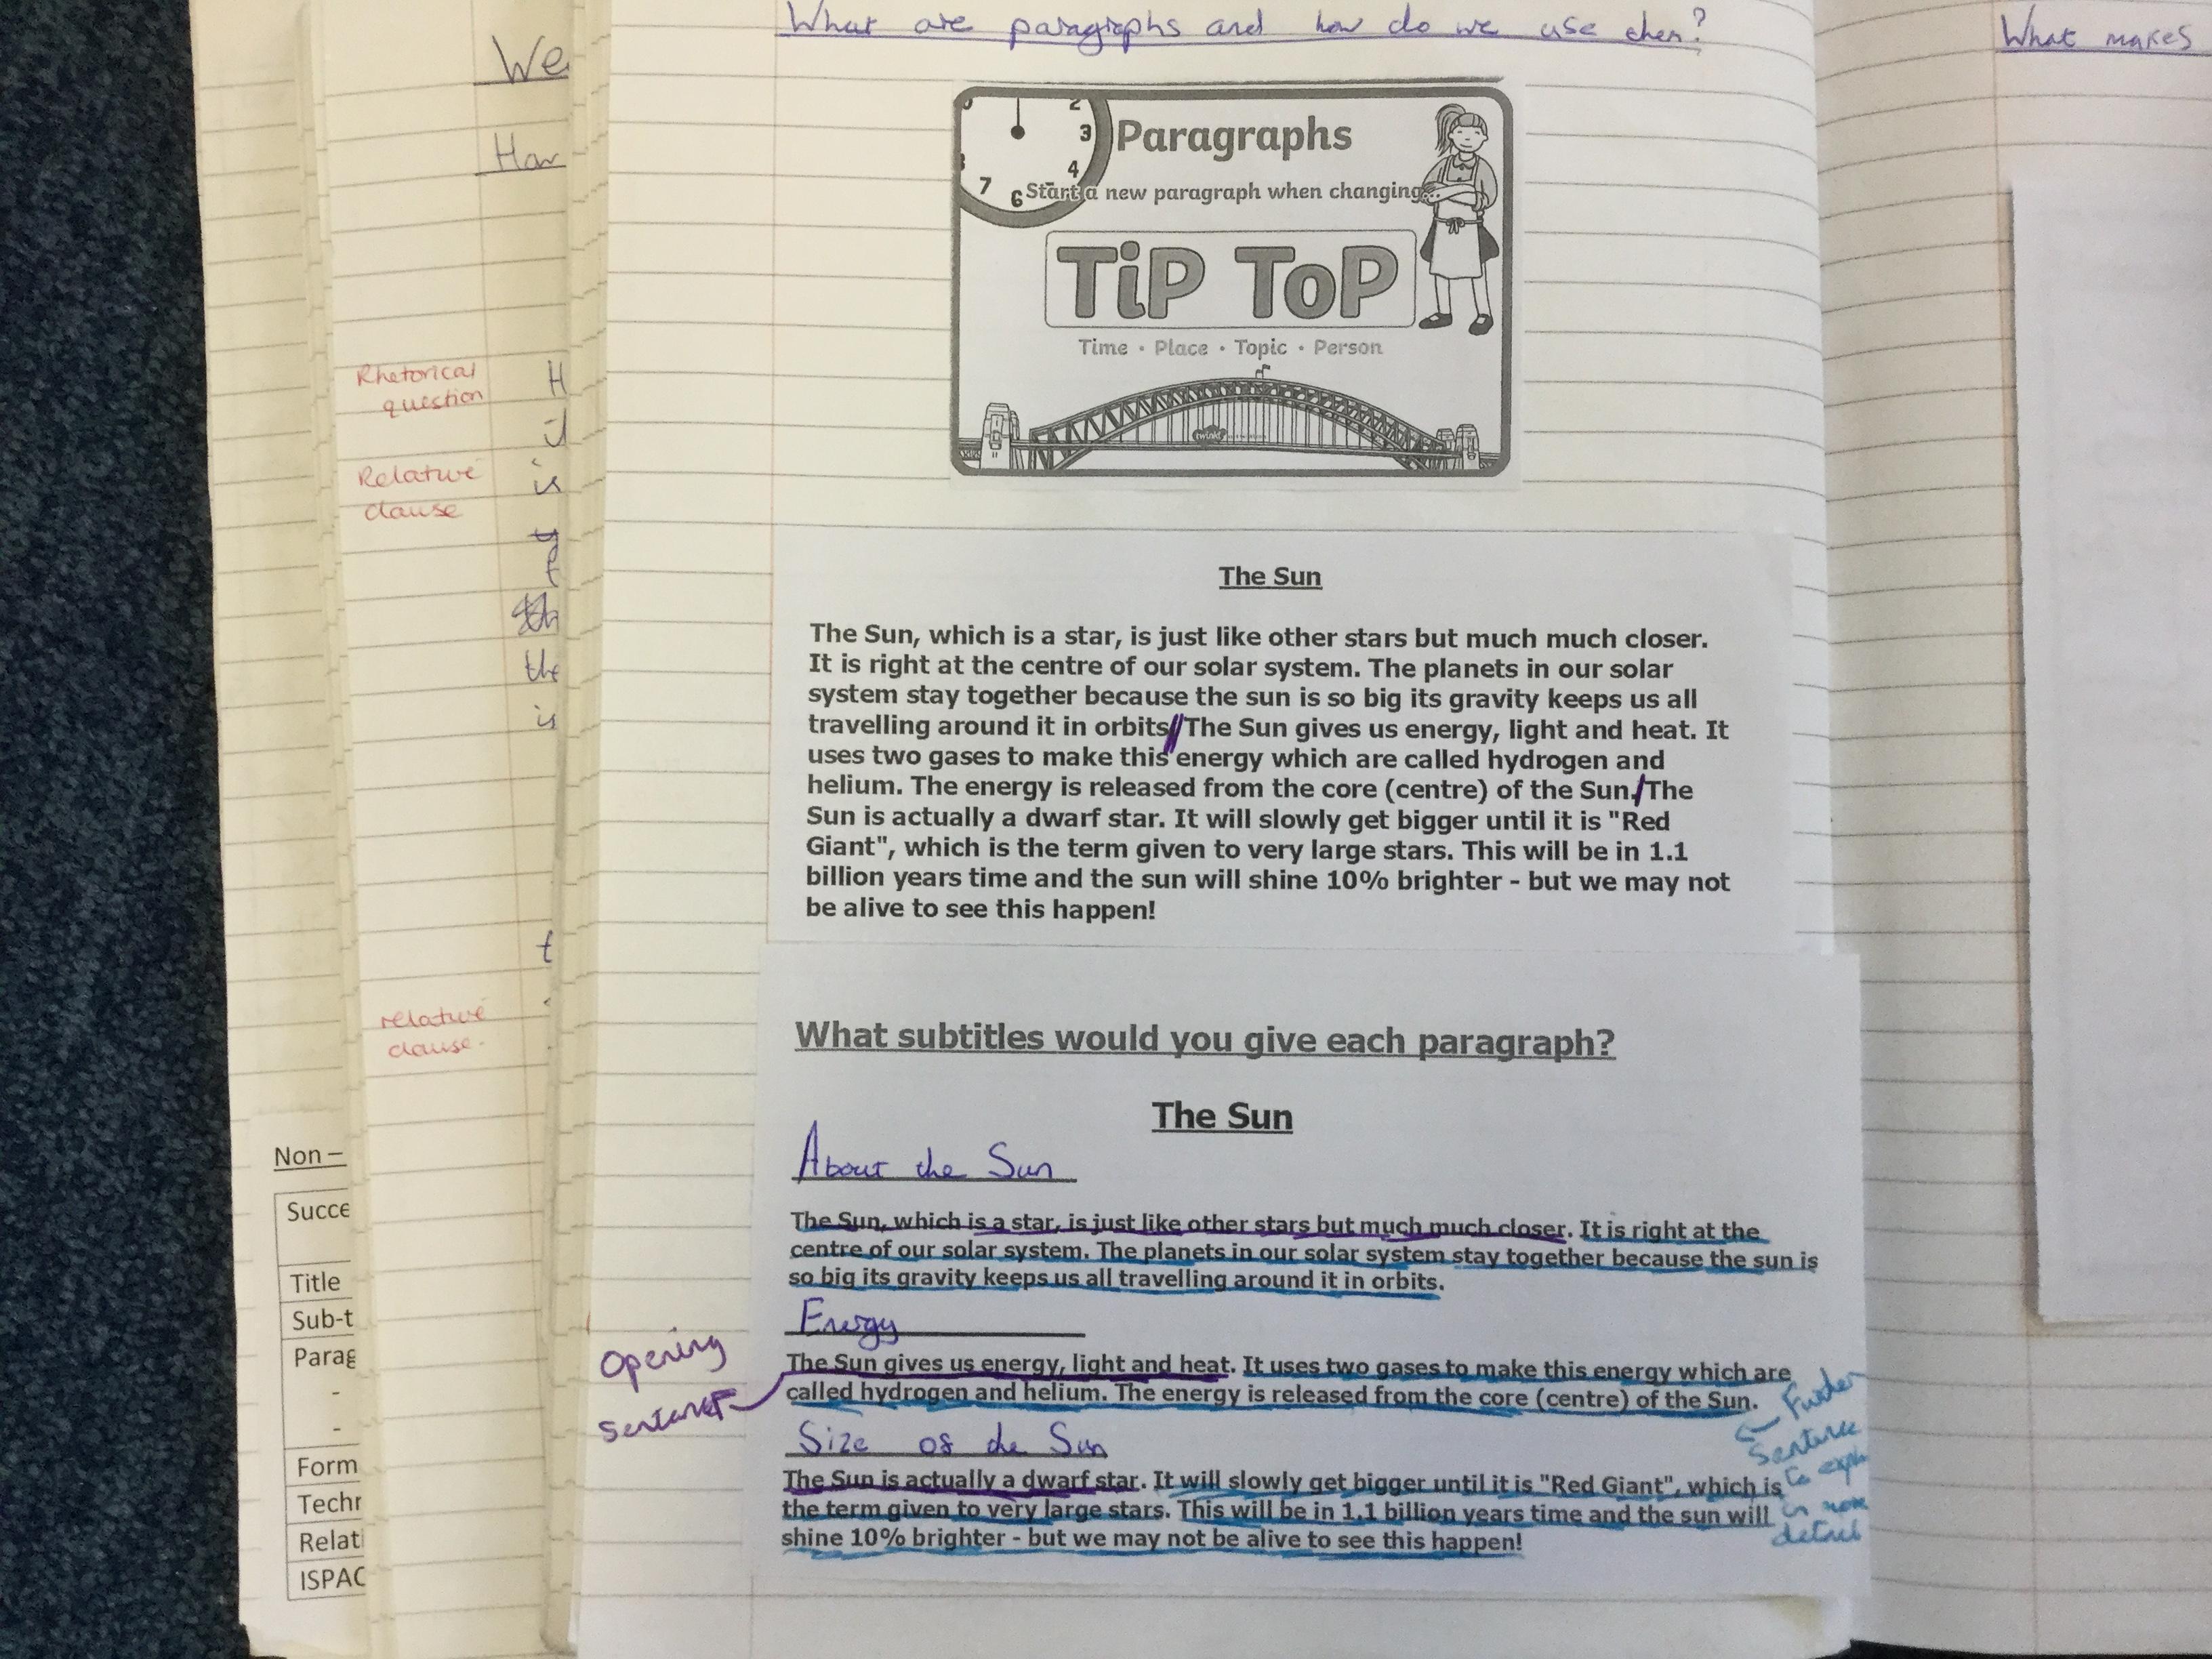 What are paragraphs and how do we use them?
What makes
We
How
2
3
4
6
7
Paragraphs
Start a new paragraph when changing...
TiP ToP
Time • Place • Topic • Person
twinkl
Rhetorical
question
H
is
Relative
clause
th
the
is
t
relative
clause.
The Sun
The Sun, which is a star, is just like other stars but much much closer.
It is right at the centre of our solar system. The planets in our solar
system stay together because the sun is so big its gravity keeps us all
travelling around it in orbits//The Sun gives us energy, light and heat. It
uses two gases to make this energy which are called hydrogen and
helium. The energy is released from the core (centre) of the Sun./The
Sun is actually a dwarf star. It will slowly get bigger until it is "Red
Giant", which is the term given to very large stars. This will be in 1.1
billion years time and the sun will shine 10% brighter - but we may not
be alive to see this happen!
What subtitles would you give each paragraph?
The Sun
About the Sun
The Sun, which is a star, is just like other stars but much much closer. It is right at the
centre of our solar system. The planets in our solar system stay together because the sun is
so big its gravity keeps us all travelling around it in orbits.
Energy
The Sun gives us energy, light and heat. It uses two gases to make this energy which are
called hydrogen and helium. The energy is released from the core (centre) of the Sun.
Size of the Sun
The Sun is actually a dwarf star. It will slowly get bigger until it is "Red Giant", which is
the term given to very large stars. This will be in 1.1 billion years time and the sun will
shine 10% brighter - but we may not be alive to see this happen!
Opening
sentence
Further
sentence
to expl
in more
detail
Non –
Succe
Title
Sub-t
Parag
-
-
Form
Techn
Relati
ISPAC